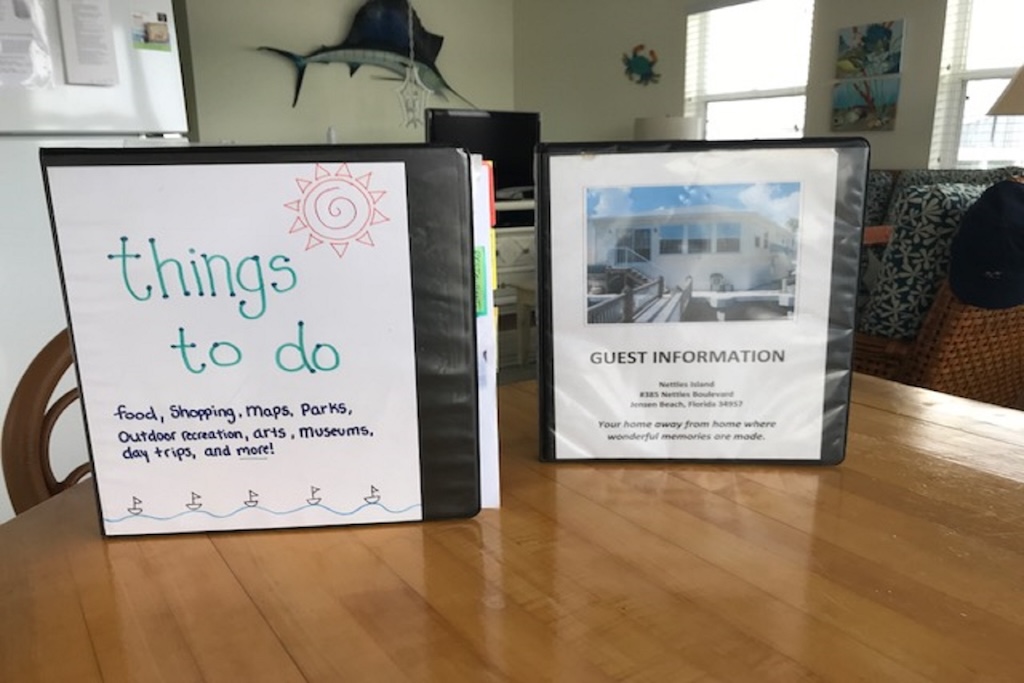 things
to do
food, Shopping, Maps, Parks,
Outdoor recreation, arts, Museums,
day trips, and more!
GUEST INFORMATION
Nettles Island
#385 Nettles Boulevard
Jensen Beach, Florida 34957
Your home away from home where
wonderful memories are made.